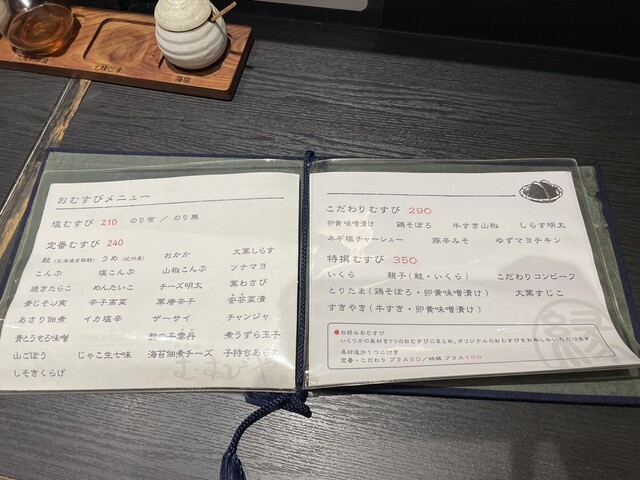 おむすびメニュー
塩むすび 210 のり有 / のり無
定番むすび 240
鮭(北海道産銀鮭) うめ(紀州産) おかか 大葉しらす
こんぶ 塩こんぶ 山椒こんぶ ツナマヨ
焼きたらこ めんたいこ チーズ明太 葉わさび
青じその実 辛子高菜 葉唐辛子 安芸菜漬
あさり佃煮 イカ塩辛 ザーサイ チャンジャ
青とうもろ味噌 数の子雲丹 煮うずら玉子
山ごぼう じゃこ生七味 海苔佃煮チーズ 子持ちあらめ
しそきくらげ
むすびや
こだわりむすび 290
卵黄味噌漬け 鶏そぼろ 牛すき山椒 しらす明太
ネギ塩チャーシュー 豚辛みそ ゆずマヨチキン
特撰むすび 350
いくら 親子(鮭・いくら) こだわりコンビーフ
とりたま(鶏そぼろ・卵黄味噌漬け) 大葉すじこ
すきやき(牛すき・卵黄味噌漬け)
●お好みおむすび
いくつかの具材を1つのおむすびにまとめ、オリジナルのおむすびをお楽しみいただけます。
具材追加1つに付き
定番・こだわり プラス50/特撰 プラス100